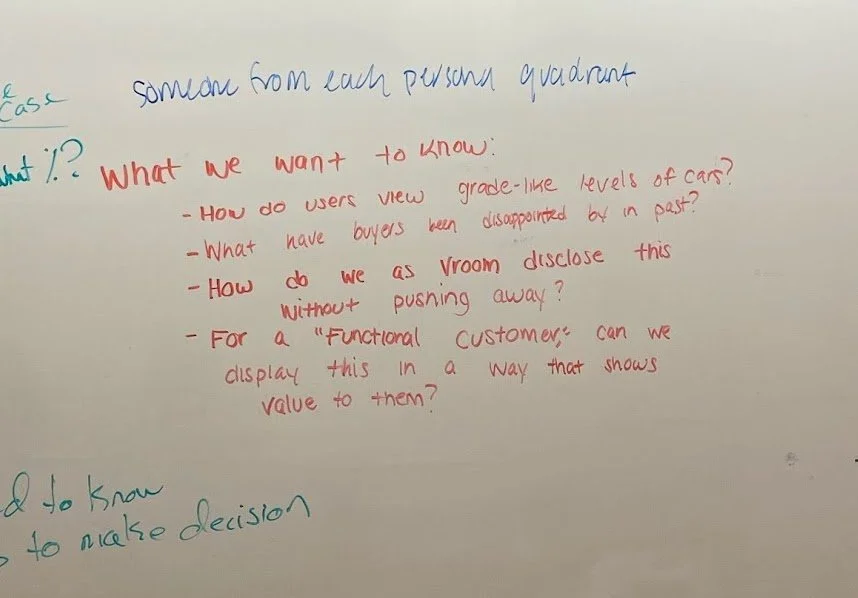 someone from each persona quadrant
Case
what %? What we want to know:
- How do users view grade-like levels of cars?
- What have buyers been disappointed by in past?
- How do we as Vroom disclose this
without pushing away?
- For a "Functional Customer," can we
display this in a way that shows
value to them?
to know
to make decision